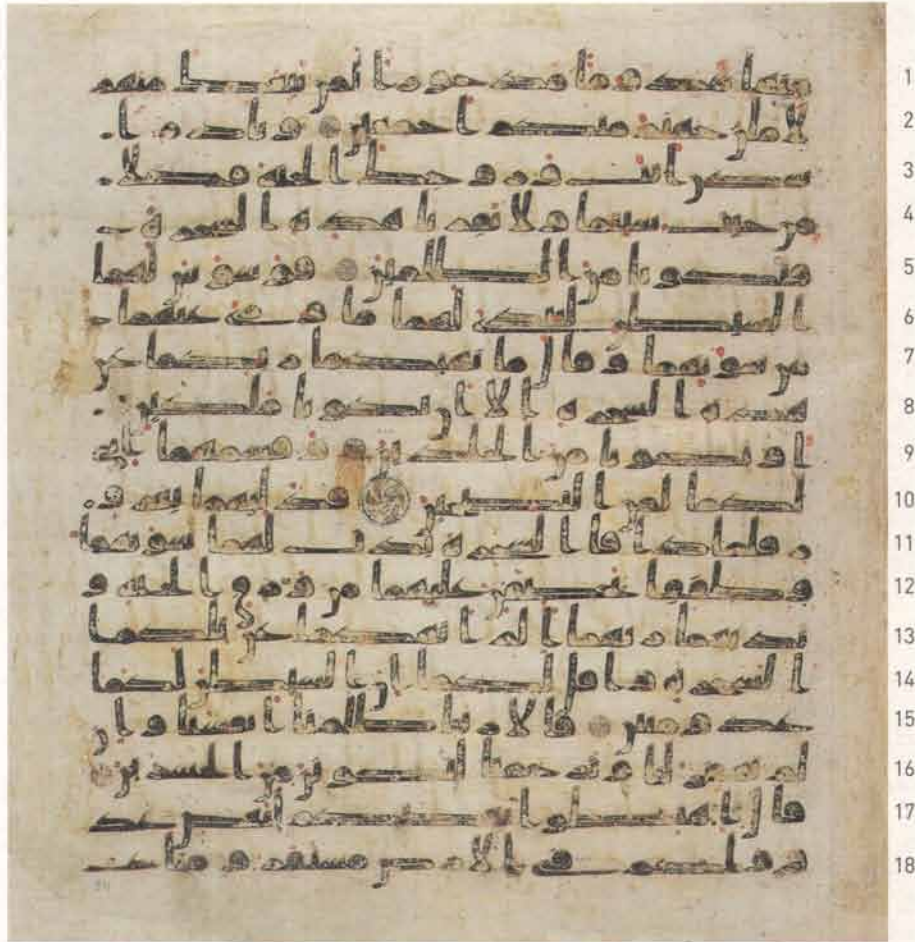 منها مذوما مدحورا لمن تبعك منهم 1
لاملن جهنم منكم اجمعين ويادم ا 2
سكن انت وزوجك الجنة فكلا 3
من حيث شيتما ولا تقربا هذه الشجرة ف 4
تكونا من الظلمين فوسوس لهما 5
الشيطن ليبدي لهما ما وري عنهما 6
من سوتهما وقال ما نهيكما ربكما عن 7
هذه الشجرة الا ان تكونا ملكين 8
او تكونا من الخلدين وقسمهما اني 9
لكما لمن النصحين فدليهما بغرو 10
ر فلما ذاقا الشجرة بدت لهما سوتهما 11
وطفقا يخصفن عليهما من ورق الجنة و 12
ناديهما ربهما الم انهكما عن تلكما 13
الشجرة واقل لكما ان الشيطن لكما 14
عدو مبين قالا ربنا ظلمنا انفسنا وان 15
لم تغفر لنا وترحمنا لنكونن من الخسرين 16
قال اهبطوا بعضكم لبعض عد 17
و ولكم في الارض مستقر ومتع 18